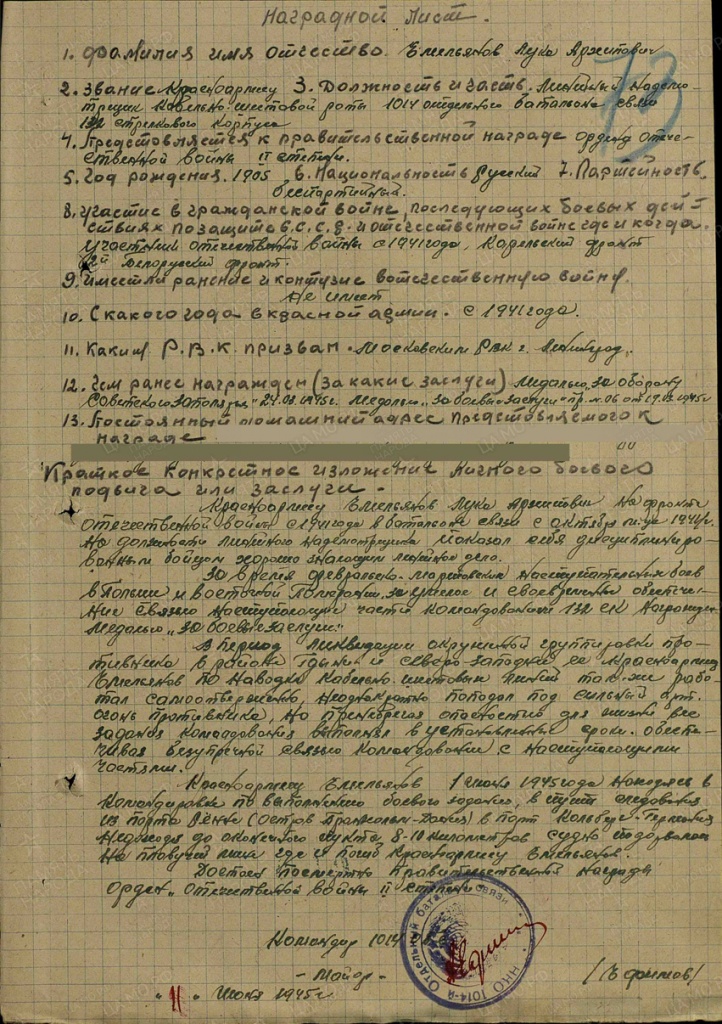 Наградной лист.
1. Фамилия имя отчество. Емельянов Лука Архипович
2. Звание Красноармеец 3. Должность и часть. Линейный надсмо-
трщик кабельно-шестовой роты 1014 отдельного батальона связи
132 стрелкового корпуса
4. Представляется к правительственной награде ордену Отече-
ственной войны II степени.
5. Год рождения. 1905 6. Национальность Русский 7. Партейность.
беспартийный.
8. Участие в гражданской войне, последующих боевых дей-
ствиях по защите С.С.С.Р. и отечественной войне где и когда.
Участник отечественной войны с 1941 года, Карельский фронт
2й Белорусский фронт.
9. Имеет ли ранение и контузие в отечественную войну.
Не имеет
10. С какого года в красной армии. с 1941 года.
11. Каким Р.В.К. призван. Московским РВК г. Ленинград.
12. Чем ранее награжден (за какие заслуги) Медалью "За оборону
Советского Заполярья" 24.03.1945г. Медалью "За боевые заслуги" пр. № 06 от 19.05.1945г
13. Постоянный домашний адрес представляемого к
награде
Краткое конкретное изложение личного боевого
подвига или заслуги.
Красноармеец Емельянов Лука Архипович на фронте
Отечественной войны с 1941 года в батальоне связи с октября м-ца 1941г.
На должности линейного надсмотрщика показал себя дисциплиниро-
ванным бойцом хорошо знающим линейное дело.
За время февральско-мартовских наступательных боев
в Польше и восточной Померании за умелое и своевременное обеспече-
ние связью наступающие части командованием 132 СК награжден
медалью "За боевые заслуги".
В период ликвидации окруженной группировки про-
тивника в районе Гдыни и северо-западнее ее Красноармеец
Емельянов по наводке кабельно-шестовых линий так же рабо-
тал самоотверженно, неоднократно попадал под сильный арт.
огонь противника, но пренебрегая опасностью для жизни все
задания командования выполнял в установленные сроки. обеспе-
чивая безупречной связью командование с наступающими
частями.
Красноармеец Емельянов 1 июня 1945 года находясь в
командировке по выполнению боевого задания, в пути следования
из порта Рённе (остров Борнхольм-Дания) в порт Кольберг-Германия
не доходя до конечного пункта 8-10 километров судно подорвалось
на плавучей мине где и погиб Красноармеец Емельянов.
Достоин посмертно Правительственной награды
Орден "Отечественной войны II степени
Командир 1014
- Майор -
(Ефимов)
" 11 " Июня 1945г.
Отдельный батальон связи
1014-й
НКО